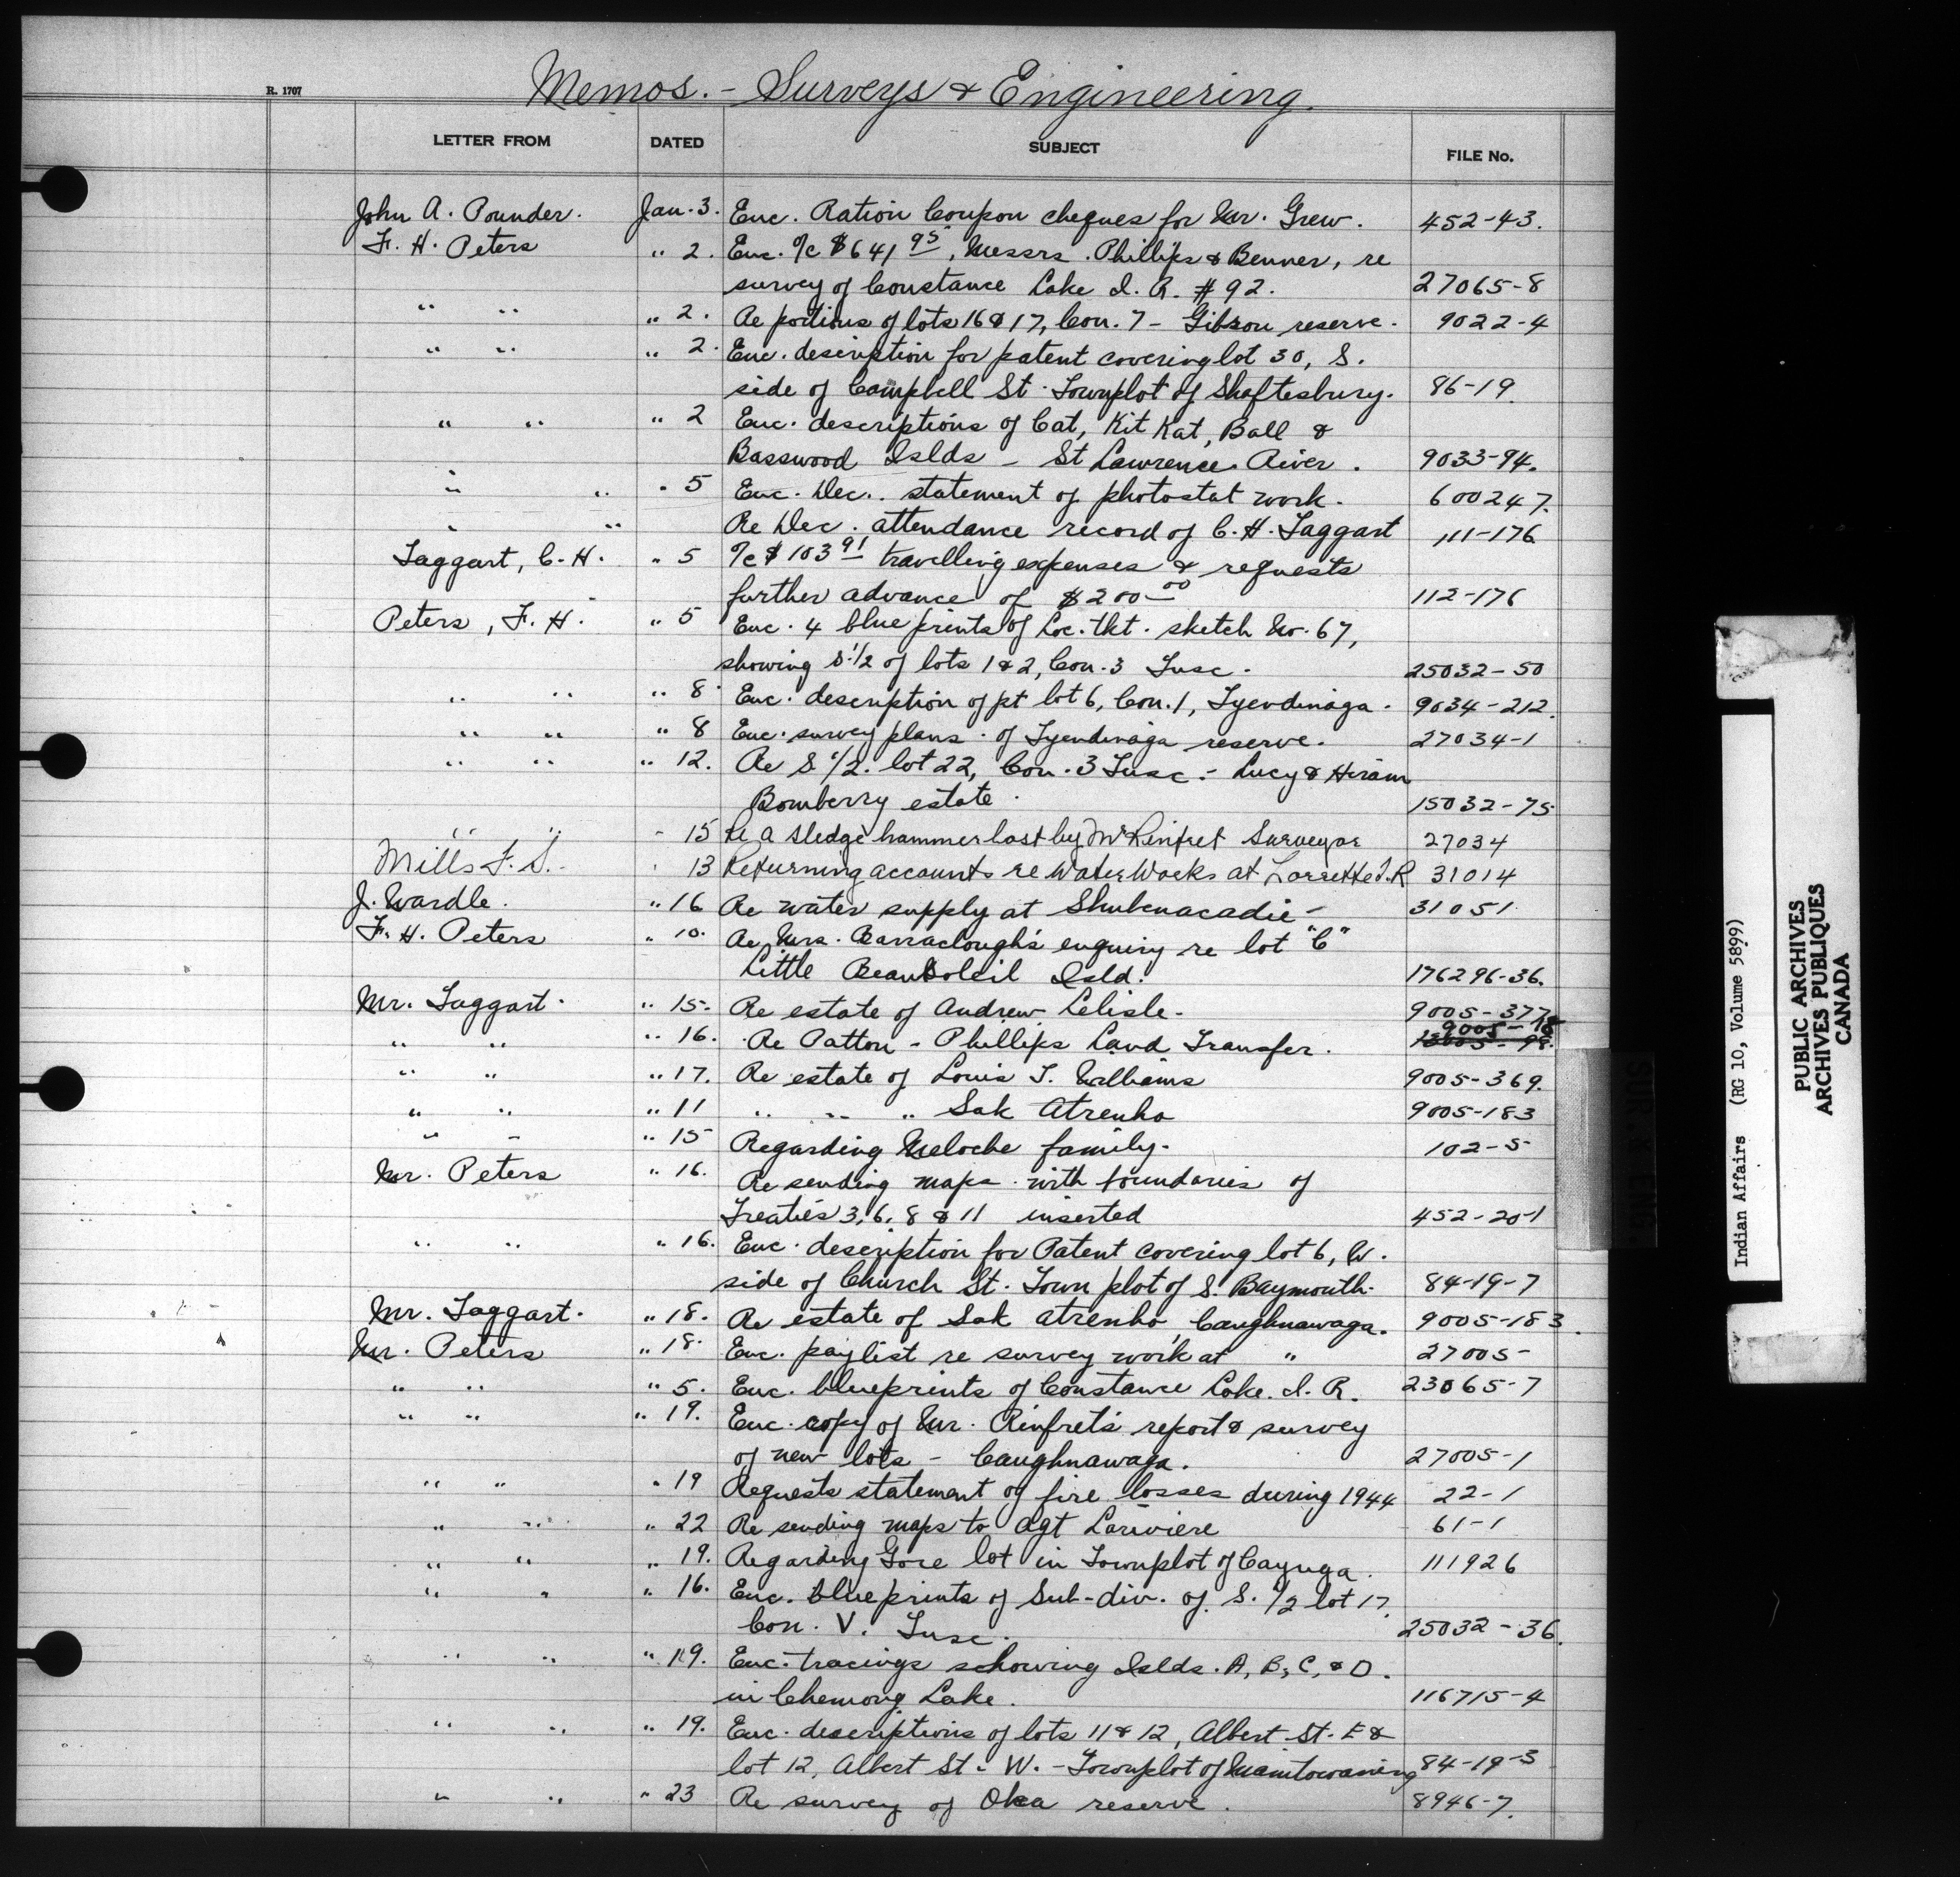 R. 1707
Memos. - Surveys & Engineering.
LETTER FROM DATED SUBJECT FILE No.
John A. Pounder. Jan. 3. Enc. Ration Coupon cheques for Mr. Grew. 452-43.
F. H. Peters " 2. Enc. a/c $641 95, Messrs. Phillips & Benner, re
survey of Constance Lake I. R. #92. 27065-8
" " " 2. Re portions of lots 16 & 17, Con. 7 - Gibson reserve. 9022-4
" " " 2. Enc. description for patent covering lot 30, S.
side of Campbell St. Townplot of Shaftesbury. 86-19
" " " 2 Enc. descriptions of Cat, Kit Kat, Ball &
Basswood Islds - St Lawrence River. 9033-94.
" " " 5 Enc. Dec. statement of photostat work. 600247.
" " Re Dec. attendance record of C. H. Taggart 111-176
Taggart, C. H. " 5 a/c $103 91 travelling expenses & requests
further advance of $200 00 112-176
Peters, F. H. " 5 Enc. 4 blue prints of Loc. tkt. sketch No. 67,
showing S. 1/2 of lots 1 & 2, Con. 3 Tusc. 25032-50
" " " 8. Enc. description of pt lot 6, Con. 1, Tyendinaga. 9034-212.
" " " 8 Enc. survey plans of Tyendinaga reserve. 27034-1
" " " 12. Re S. 1/2. lot 22, Con. 3 Tusc. - Lucy & Hiram
Bomberry estate. 15032-75
" " - 15 Re a sledge hammer lost by Mr Rinfret Surveyor 27034
Mills F. S. " 13 Returning accounts re Water Works at Lorrette I.R 31014
J. Wardle. " 16 Re water supply at Shubenacadie - 31051
F. H. Peters " 10. Re Mrs. Barraclough's enquiry re lot "C"
Little Beausoleil Isld. 176296-36.
Mr. Taggart. " 15. Re estate of Andrew Delisle. 9005-377
9005-
" " " 16. Re Patton - Phillips Land Transfer.
" " " 17. Re estate of Louis T. Williams 9005-369.
" " " 11 " " " Sak Atrenho 9005-183
" " " 15 Regarding Meloche family. 102-5
Mr. Peters " 16. Re sending maps with boundaries of
Treaties 3, 6, 8 & 11 inserted 452-20-1
" " " 16. Enc. description for Patent covering lot 6, W.
side of Church St. Town plot of S. Baymouth. 84-19-7
Mr. Taggart. " 18. Re estate of Sak Atrenho, Caughnawaga. 9005-183.
Mr. Peters " 18. Enc. paylist re survey work at " 27005-
" " " 5. Enc. blueprints of Constance Lake. I. R. 23065-7
" " " 19. Enc. copy of Mr. Rinfret's report & survey
of new lots - Caughnawaga. 27005-1
" " " 19 Requests statement of fire losses during 1944 22-1
" " " 22 Re sending maps to Agt Lariviere 61-1
" " " 19. Regarding Gore lot in Townplot of Cayuga. 111926
" " " 16. Enc. blue prints of Sub-div. of S. 1/2 lot 17,
Con. V. Tusc. 25032-36.
" " " 19. Enc. tracings showing Islds. A, B, C, & D.
in Chemong Lake. 116715-4
" " " 19. Enc. descriptions of lots 11 & 12, Albert St. E &
lot 12, Albert St. W. - Townplot of Manitowaning 84-19-3
" " " 23 Re survey of Oka reserve. 8946-7.
Indian Affairs (RG 10, Volume 5899)
PUBLIC ARCHIVES
ARCHIVES PUBLIQUES
CANADA